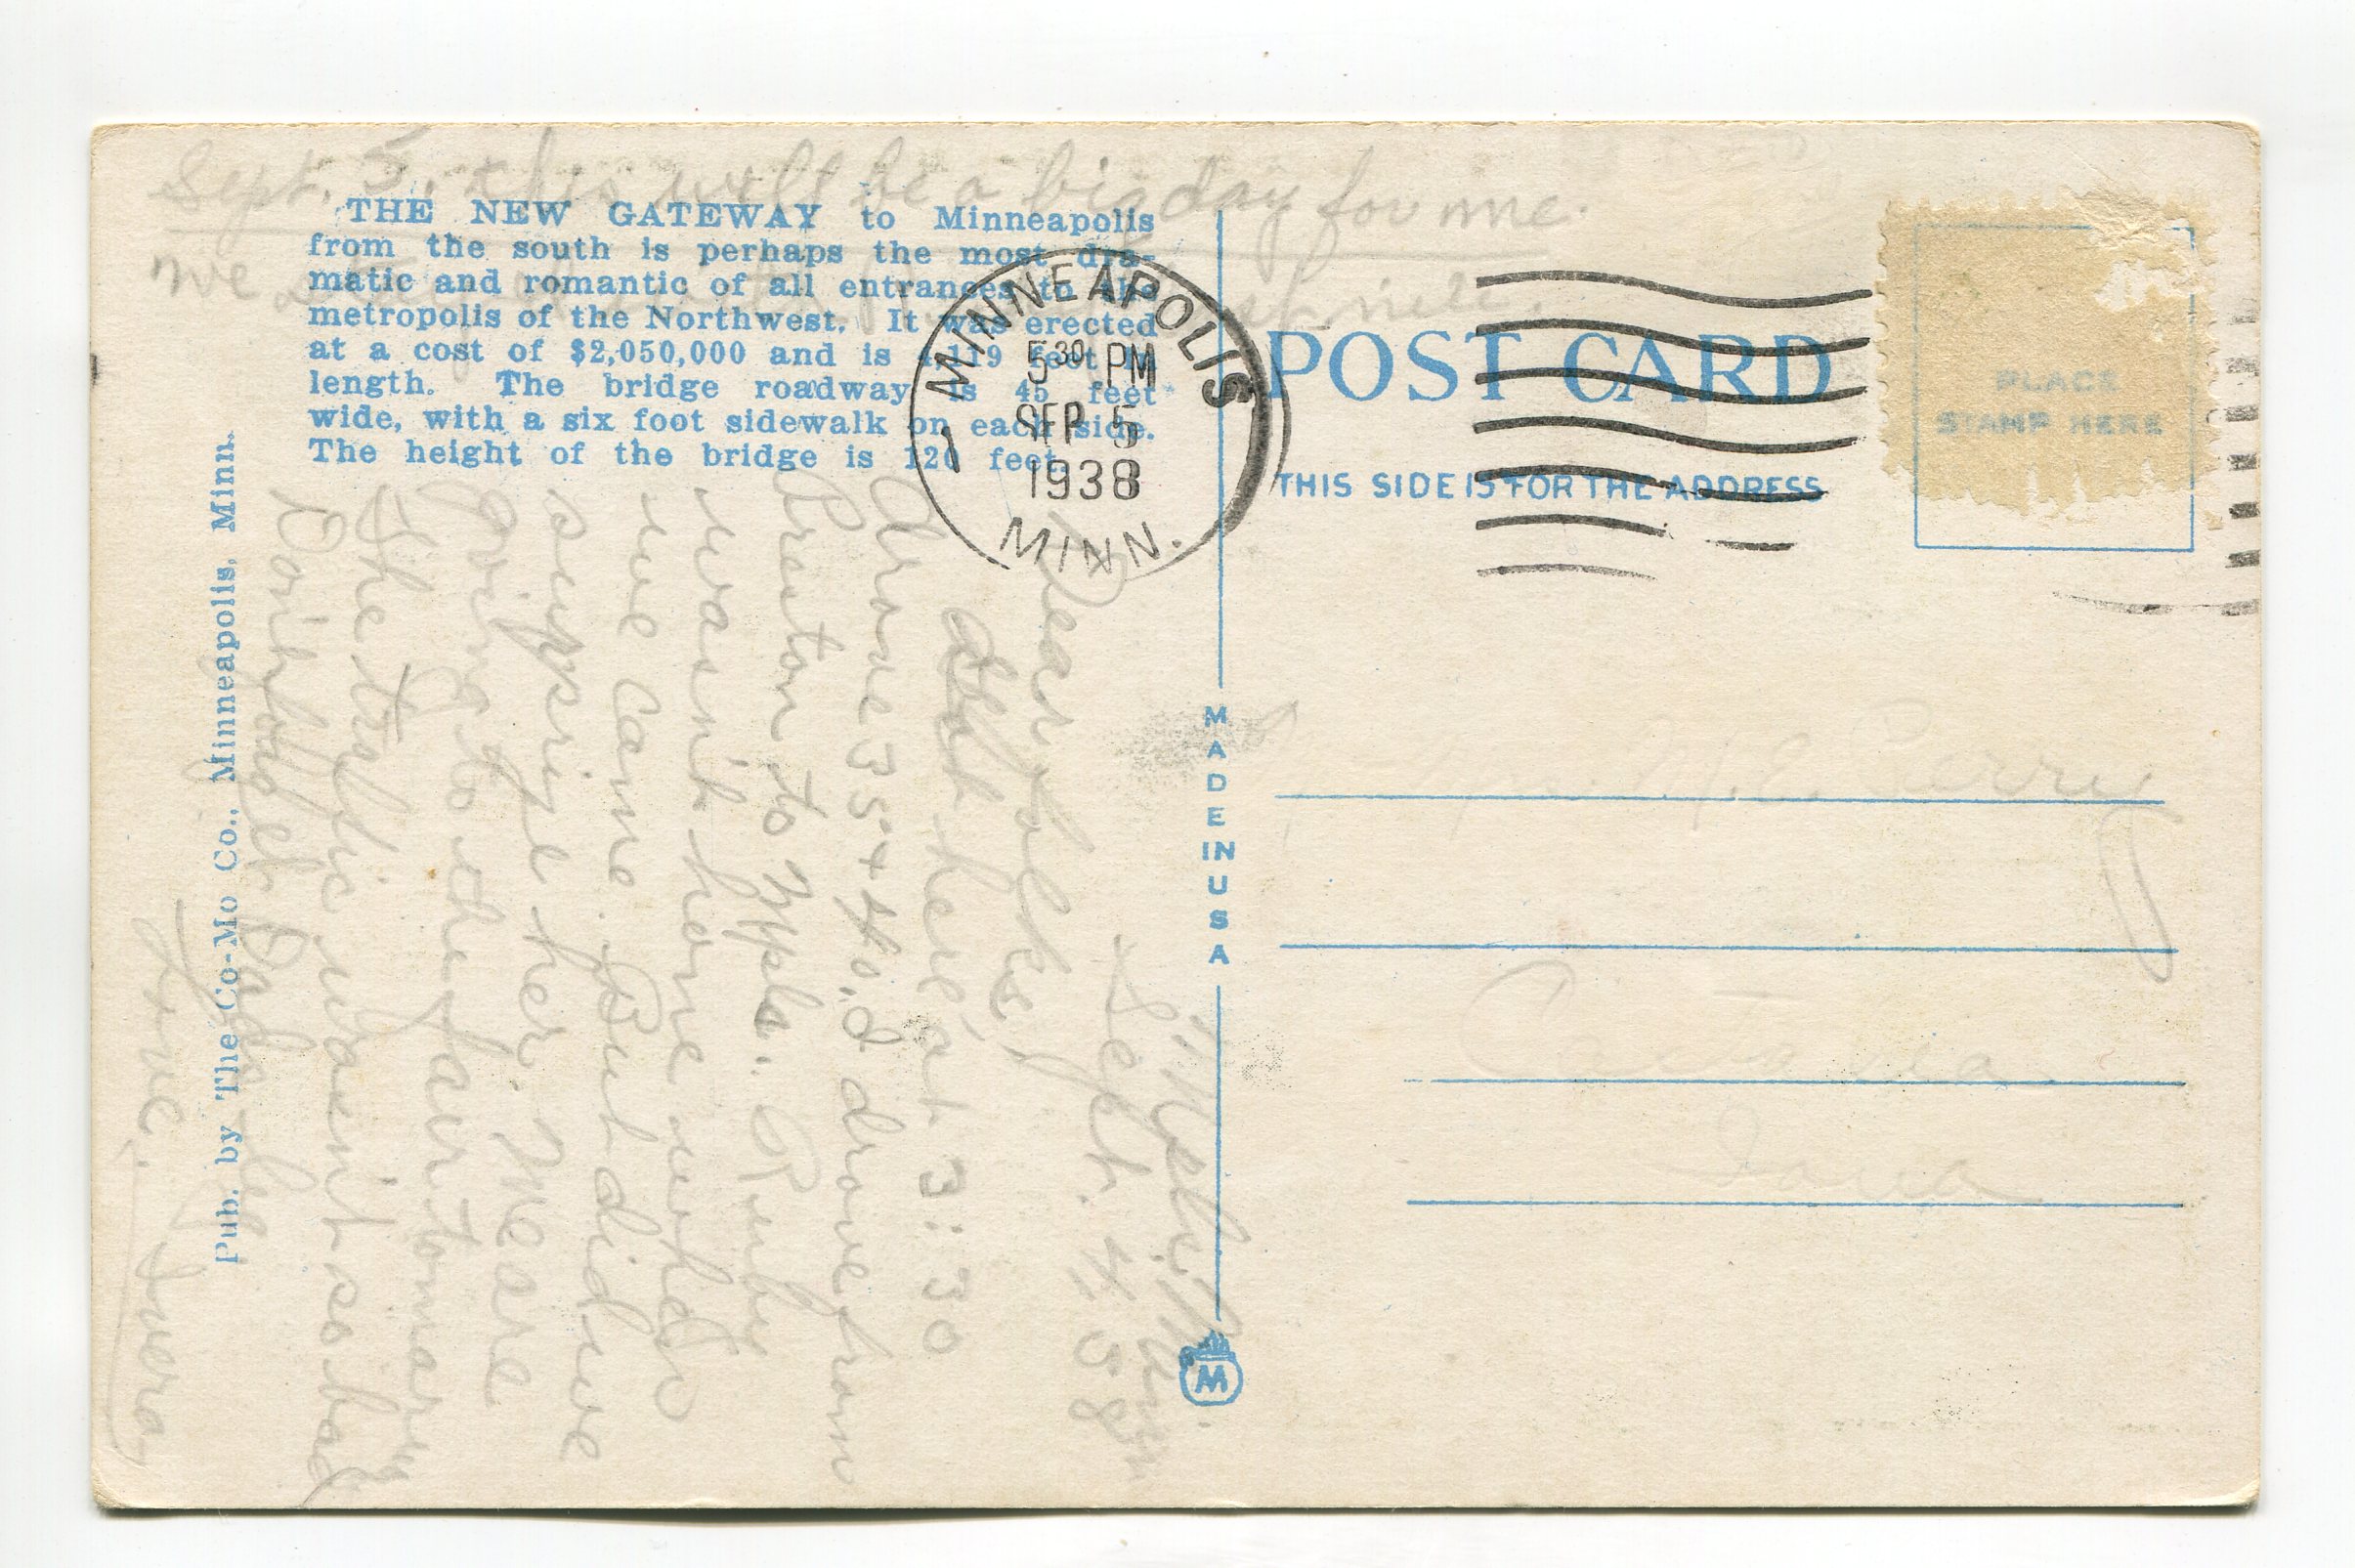 Sept. 5. this will be a big day for me.
We stayed
THE NEW GATEWAY to Minneapolis
from the south is perhaps the most dra-
matic and romantic of all entrances to the
metropolis of the Northwest. It was erected
at a cost of $2,050,000 and is 4,119 feet in
length. The bridge roadway is 45 feet
wide, with a six foot sidewalk on each side.
The height of the bridge is 120 feet.
Pub. by The Co-Mo Co., Minneapolis, Minn.
Mpls. Minn.
Sept. 4, 38
Dear folks,
Got here at 3:30
drove 35 + 40. I drove from
Preston to Mpls. Ruby
wasn't home when
we came. But did we
surprise her. We are
going to the fair tomorrow
The traffic wasn't so bad
Love, Ivera
MINNEAPOLIS
1
5 30 PM
SEP 5
1938
MINN.
POST CARD
THIS SIDE IS FOR THE ADDRESS
PLACE
STAMP HERE
MADE IN USA
M
M. E. Perry
Castana
Iowa